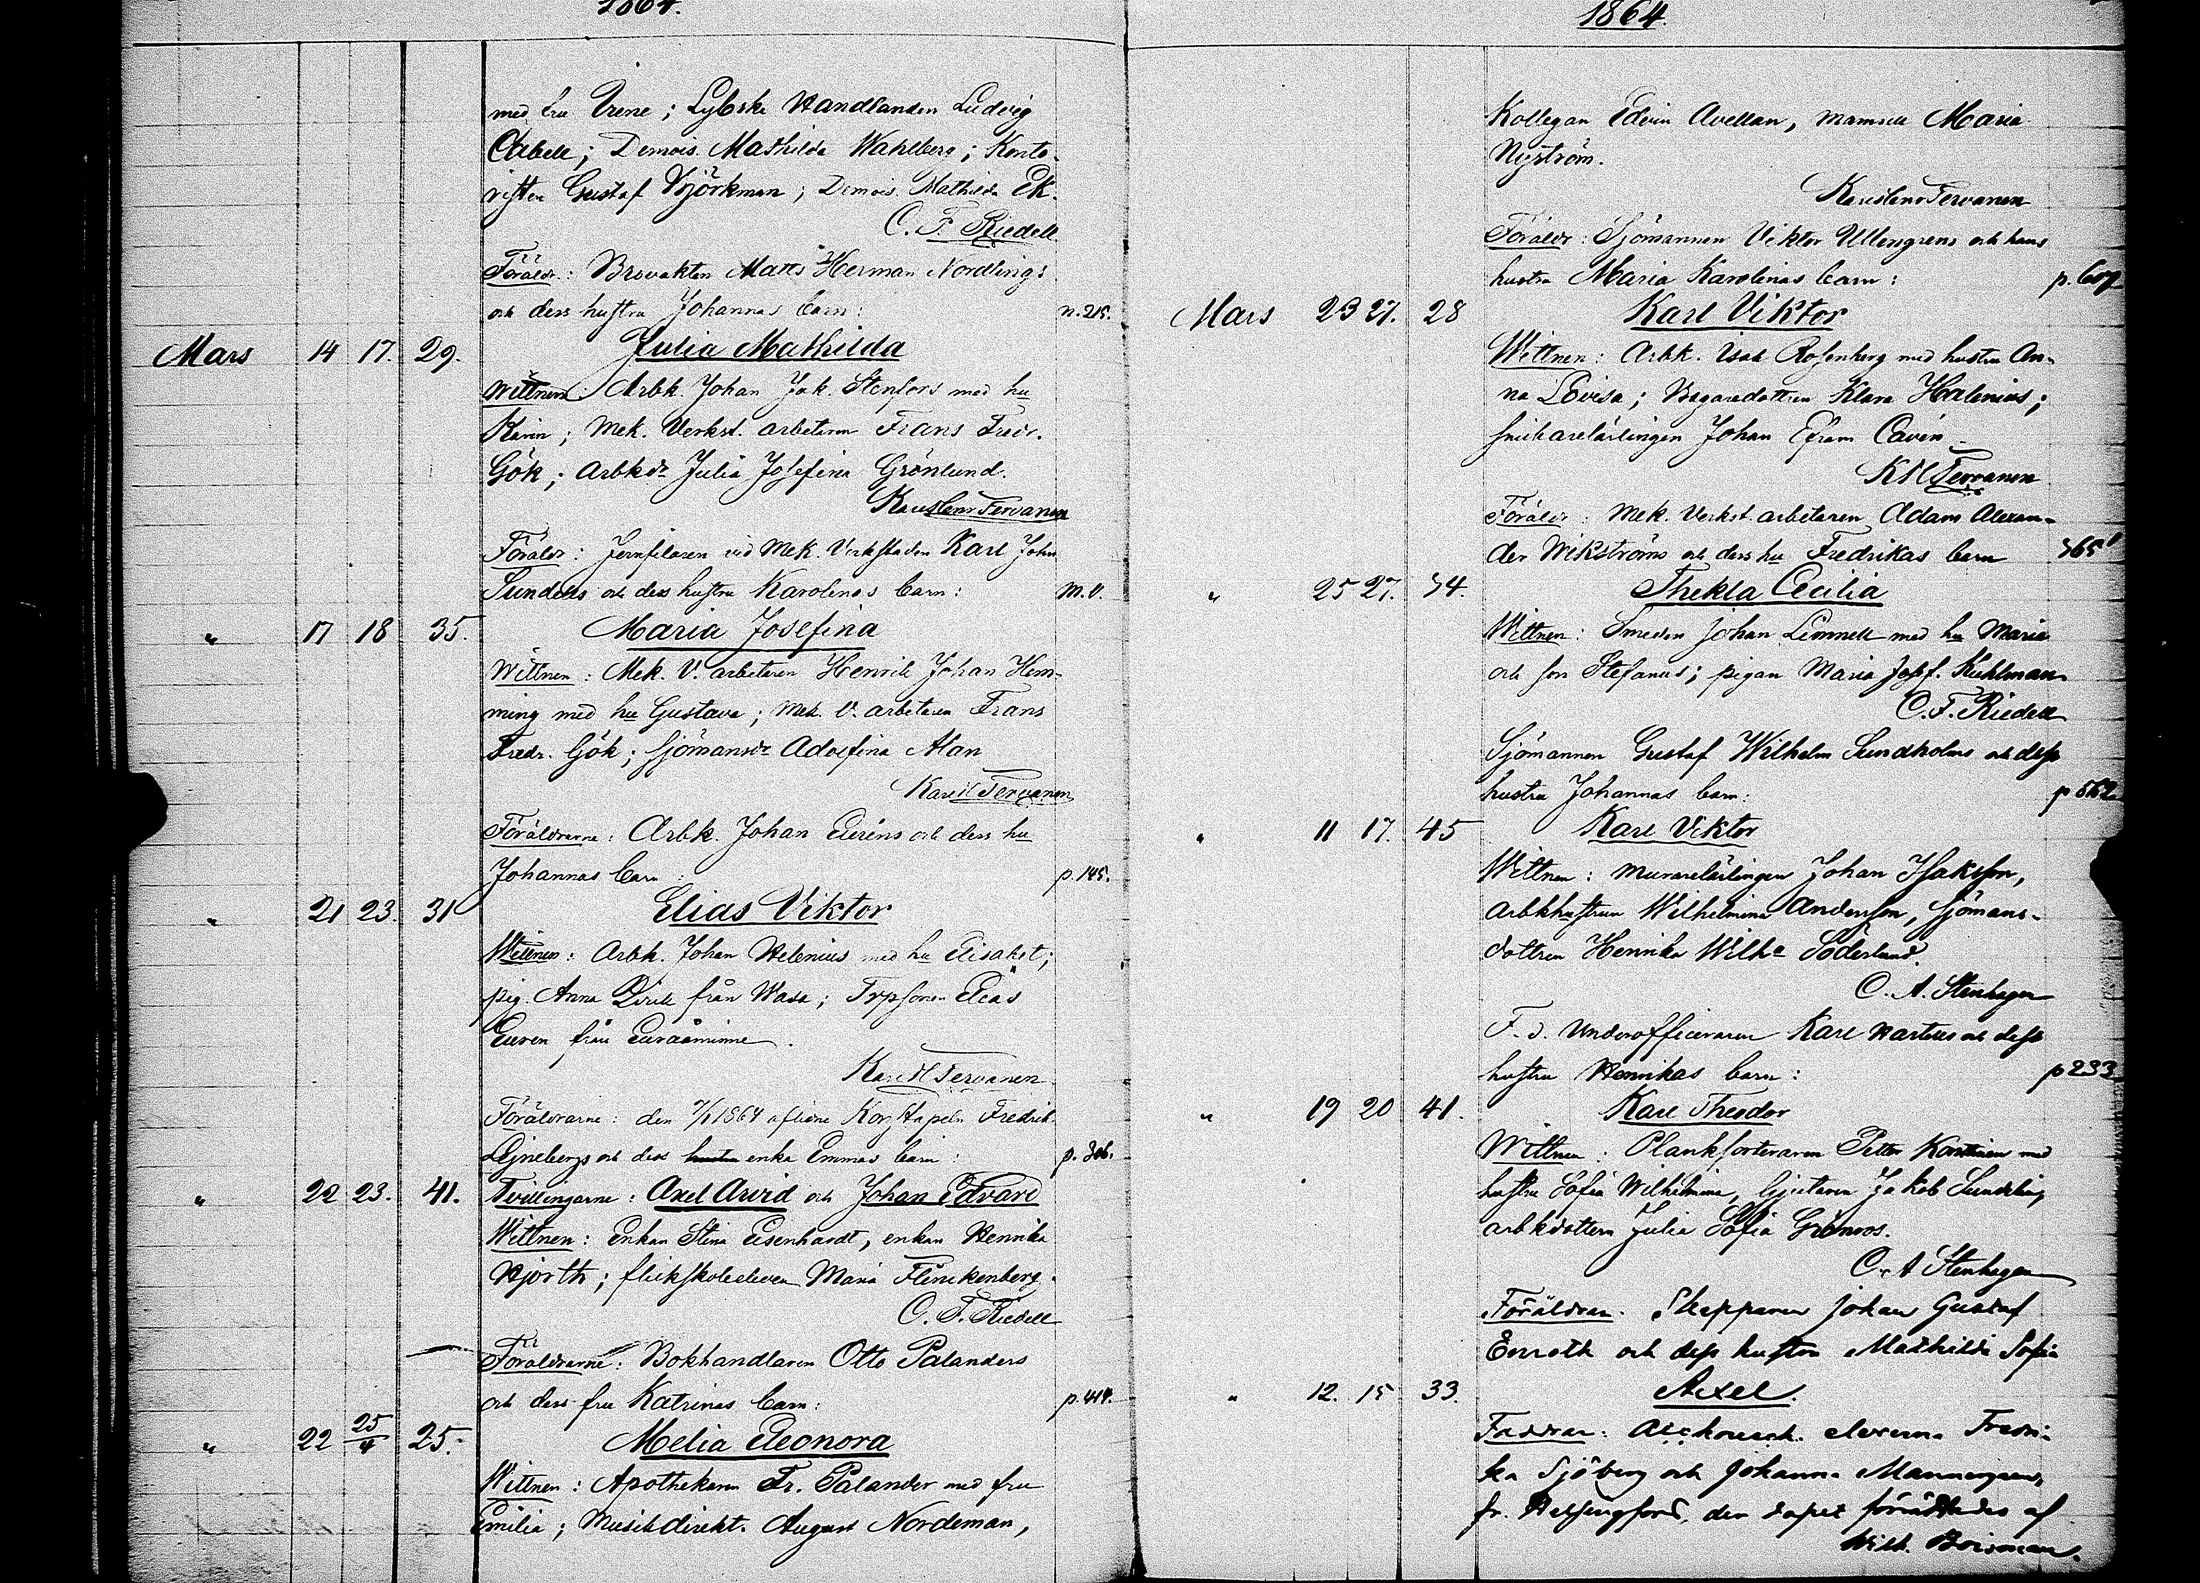 1864.
med fru Irene; Lybske Handlanden Ludvig
Demois. Mathilda Wahlberg; Konto-
risten Gustaf Björkman; Demois. Mathilda Ek.
C. F. Riedell
Föräldr.: Brovakten Matts Herman Nordlings
och dess hustru Johannas barn: n. 215.
Mars 14 17. 29. Julia Mathilda
Wittnen: Arbk. Johan Jak. Stenfors med hu
Karin; Mek. Verkst. arbetaren Frans Fredr.
Gök; Arbkdr Julia Josefina Grönlund.
Tervanen
Föräldr: Jernfilaren vid Mek. Verkstaden Karl Johan
och dess hustru Karolinas barn: M.V.
" 17 18 35. Maria Josefina
Wittnen: Mek. V. arbetaren Henrik Johan Hem-
ming med hu Gustava; Mek. V. arbetaren Frans
Fredr. Gök; Sjömansdr Adolfina Alan
Karl H Tervanen
Föräldrarne: Arbk. Johan Eurens och dess hu
Johannas barn: p. 145.
" 21 23. 31 Elias Viktor
Wittnen: Arbk. Johan Helenius med hu Elisabet;
pig. Anna från Wasa; Elias
Euren från Euraåminne.
Karl H Tervanen
Föräldrarne: den 1864 aflidne Fredrik
Lejnebergs och dess hustru enka Emmas barn: p. 306.
" 22 23. 41. Tvillingarne: Axel Arvid och Johan Edvard
Wittnen: Enkan Stina Eisenhardt, enkan Henrika
Hjorth; flickskoleleven Maria Flinckenberg.
C. F. Riedell
Föräldrarne: Bokhandlaren Otto Palanders
och dess fru Katrinas barn: p. 414.
" 22 25/4 25. Melia Eleonora
Wittnen: Apothekaren Fr. Palander med fru
Emilia; Musikdirekt. August Nordeman,
1864.
Kollegan Edvin Avellan, mamsell Maria
Nyström.
Tervanen
Föräldr: Sjömannen Viktor Ullengrens och hans
hustru Maria Karolinas barn: p. 607
Mars 23 27. 28 Karl Viktor
Wittnen: Arbk. Isak Rosenberg med hustru An-
na Lovisa; Bagaredottren Klara Helenius;
Johan Efraim Cavén
K H Tervanen
Föräldr: Mek. Verkst. arbetaren Adam Alexan-
der Wikströms och dess hu Fredrikas barn 365
" 25 27. 34. Thekla Cecilia
Wittnen: Smeden Johan Limnell med hu Maria
och son Stefanus; pigan Maria Josef. Kuhlman
C. F. Riedell
Sjömannen Gustaf Wilhelm Sundholms och dess
hustru Johannas barn: p 562
" 11 17. 45 Karl Viktor
Wittnen: Murarelärlingen Johan Isaksson,
Arbkhustrun Wilhelmina Andersson, Sjömans-
dottren Henrika Wilha Söderlund.
C. A. Stenhagen
F. d. Underofficeraren Karl Hartius och dess
hustru Henrikas barn: p 233
" 19 20 41. Karl Theodor
Wittnen: Petter med
hustru Sofia Wilhelmina, Gjutaren Jakob Sundelin,
arbkdottern Julia Sofia Grönroos.
C. A Stenhagen
Föräldrar. Skepparen Johan Gustaf
Enroth och dess hustru Mathilda Sofia
" 12. 15 33. Axel.
Faddrar: eleverna Fredri-
ka Sjöberg och Johanna
fr. Helsingfors, den dopet förrättades af
Wilh.